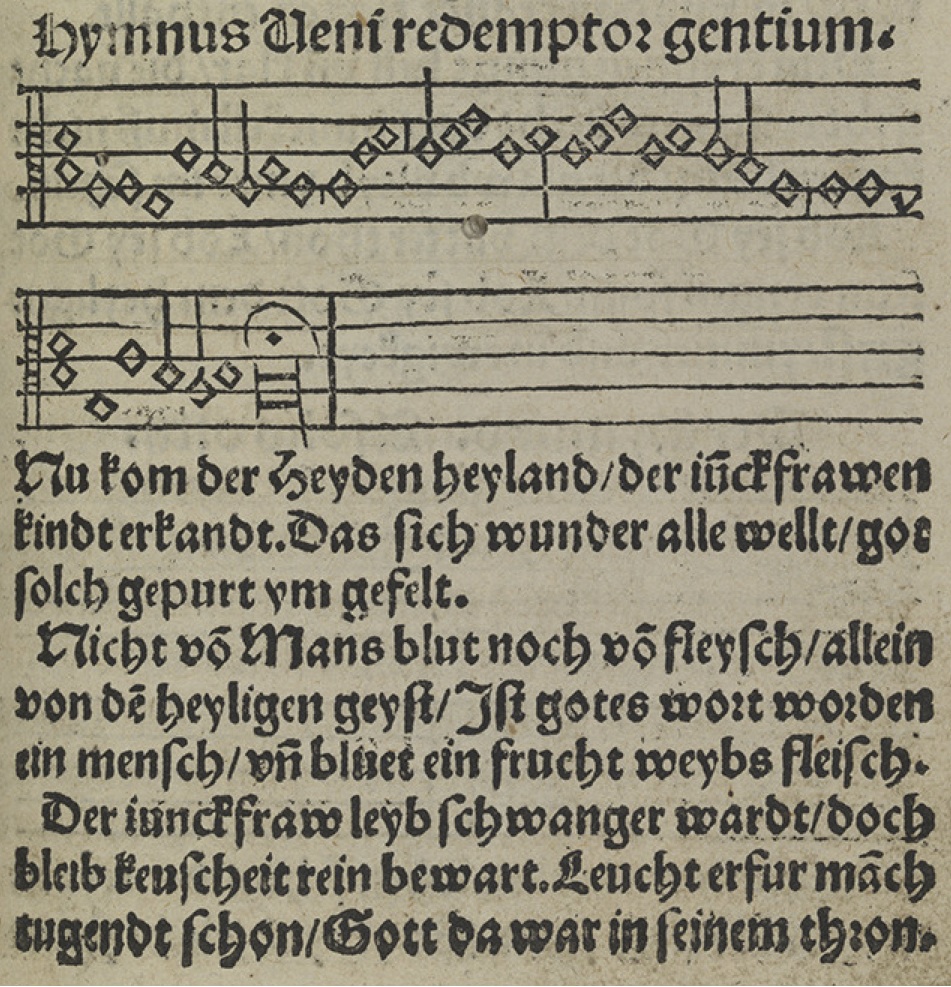 Hymnus Veni redemptor gentium.
Nu kom der Heyden heyland/der iūckfrawen
kindt erkandt.Das sich wunder alle wellt/got
solch gepurt ym gefelt.
Nicht vō Mans blut noch vō fleysch/allein
von dē heyligen geyst/Ist gotes wort worden
ein mensch/vn̄ bluet ein frucht weybs fleisch.
Der iunckfraw leyb schwanger wardt/doch
bleib keuscheit rein bewart.Leucht erfur māch
tugendt schon/Gott da war in seinem thron.